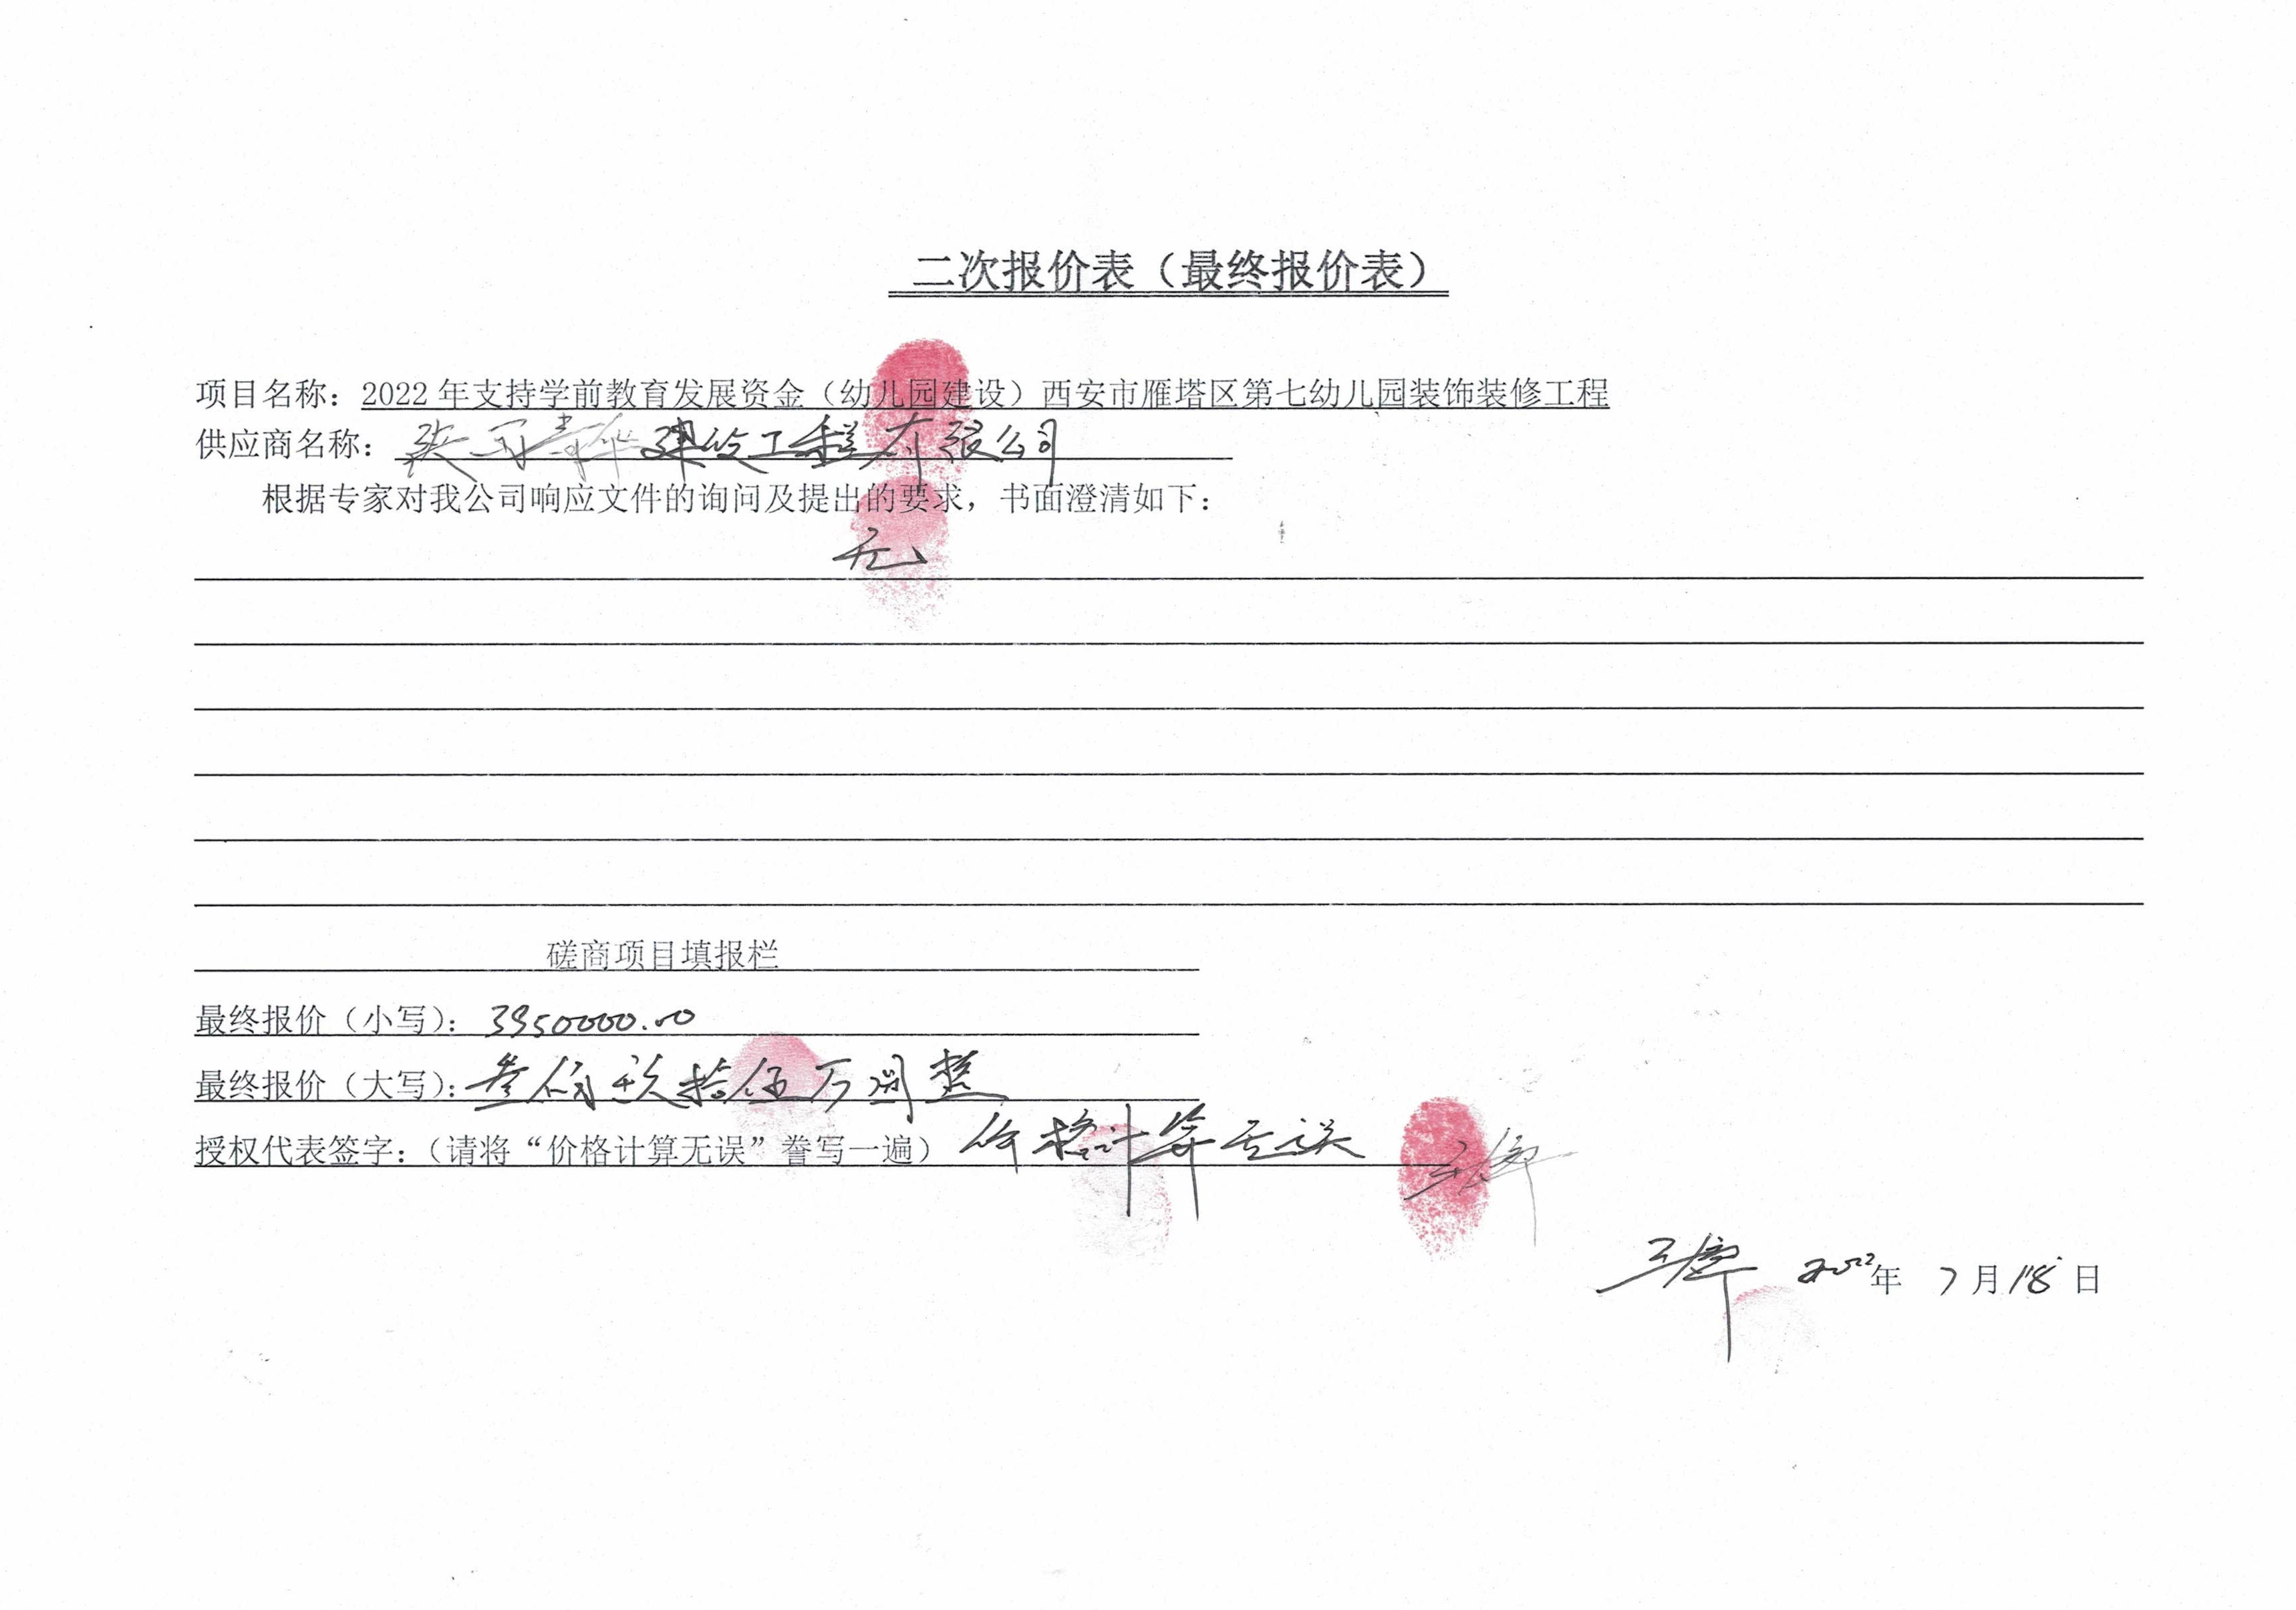 二次报价表（最终报价表）
项目名称：2022年支持学前教育发展资金（幼儿园建设）西安市雁塔区第七幼儿园装饰装修工程
供应商名称：建设工程有限公司
根据专家对我公司响应文件的询问及提出的要求，书面澄清如下：
无
磋商项目填报栏
最终报价（小写）：3950000.00
最终报价（大写）：叁佰玖拾伍万圆整
授权代表签字：（请将“价格计算无误”誊写一遍）价格计算无误
2022年 7月18日